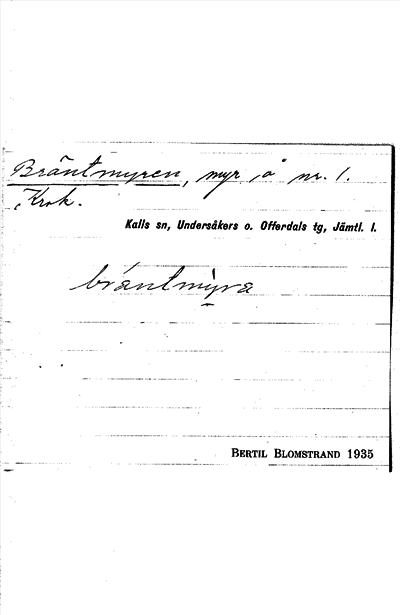 Bräntmyren, myr å nr. 1.
Krok.
Kalls sn, Undersåkers o. Offerdals tg, Jämtl. l.
bräntmỳra
BERTIL BLOMSTRAND 1935